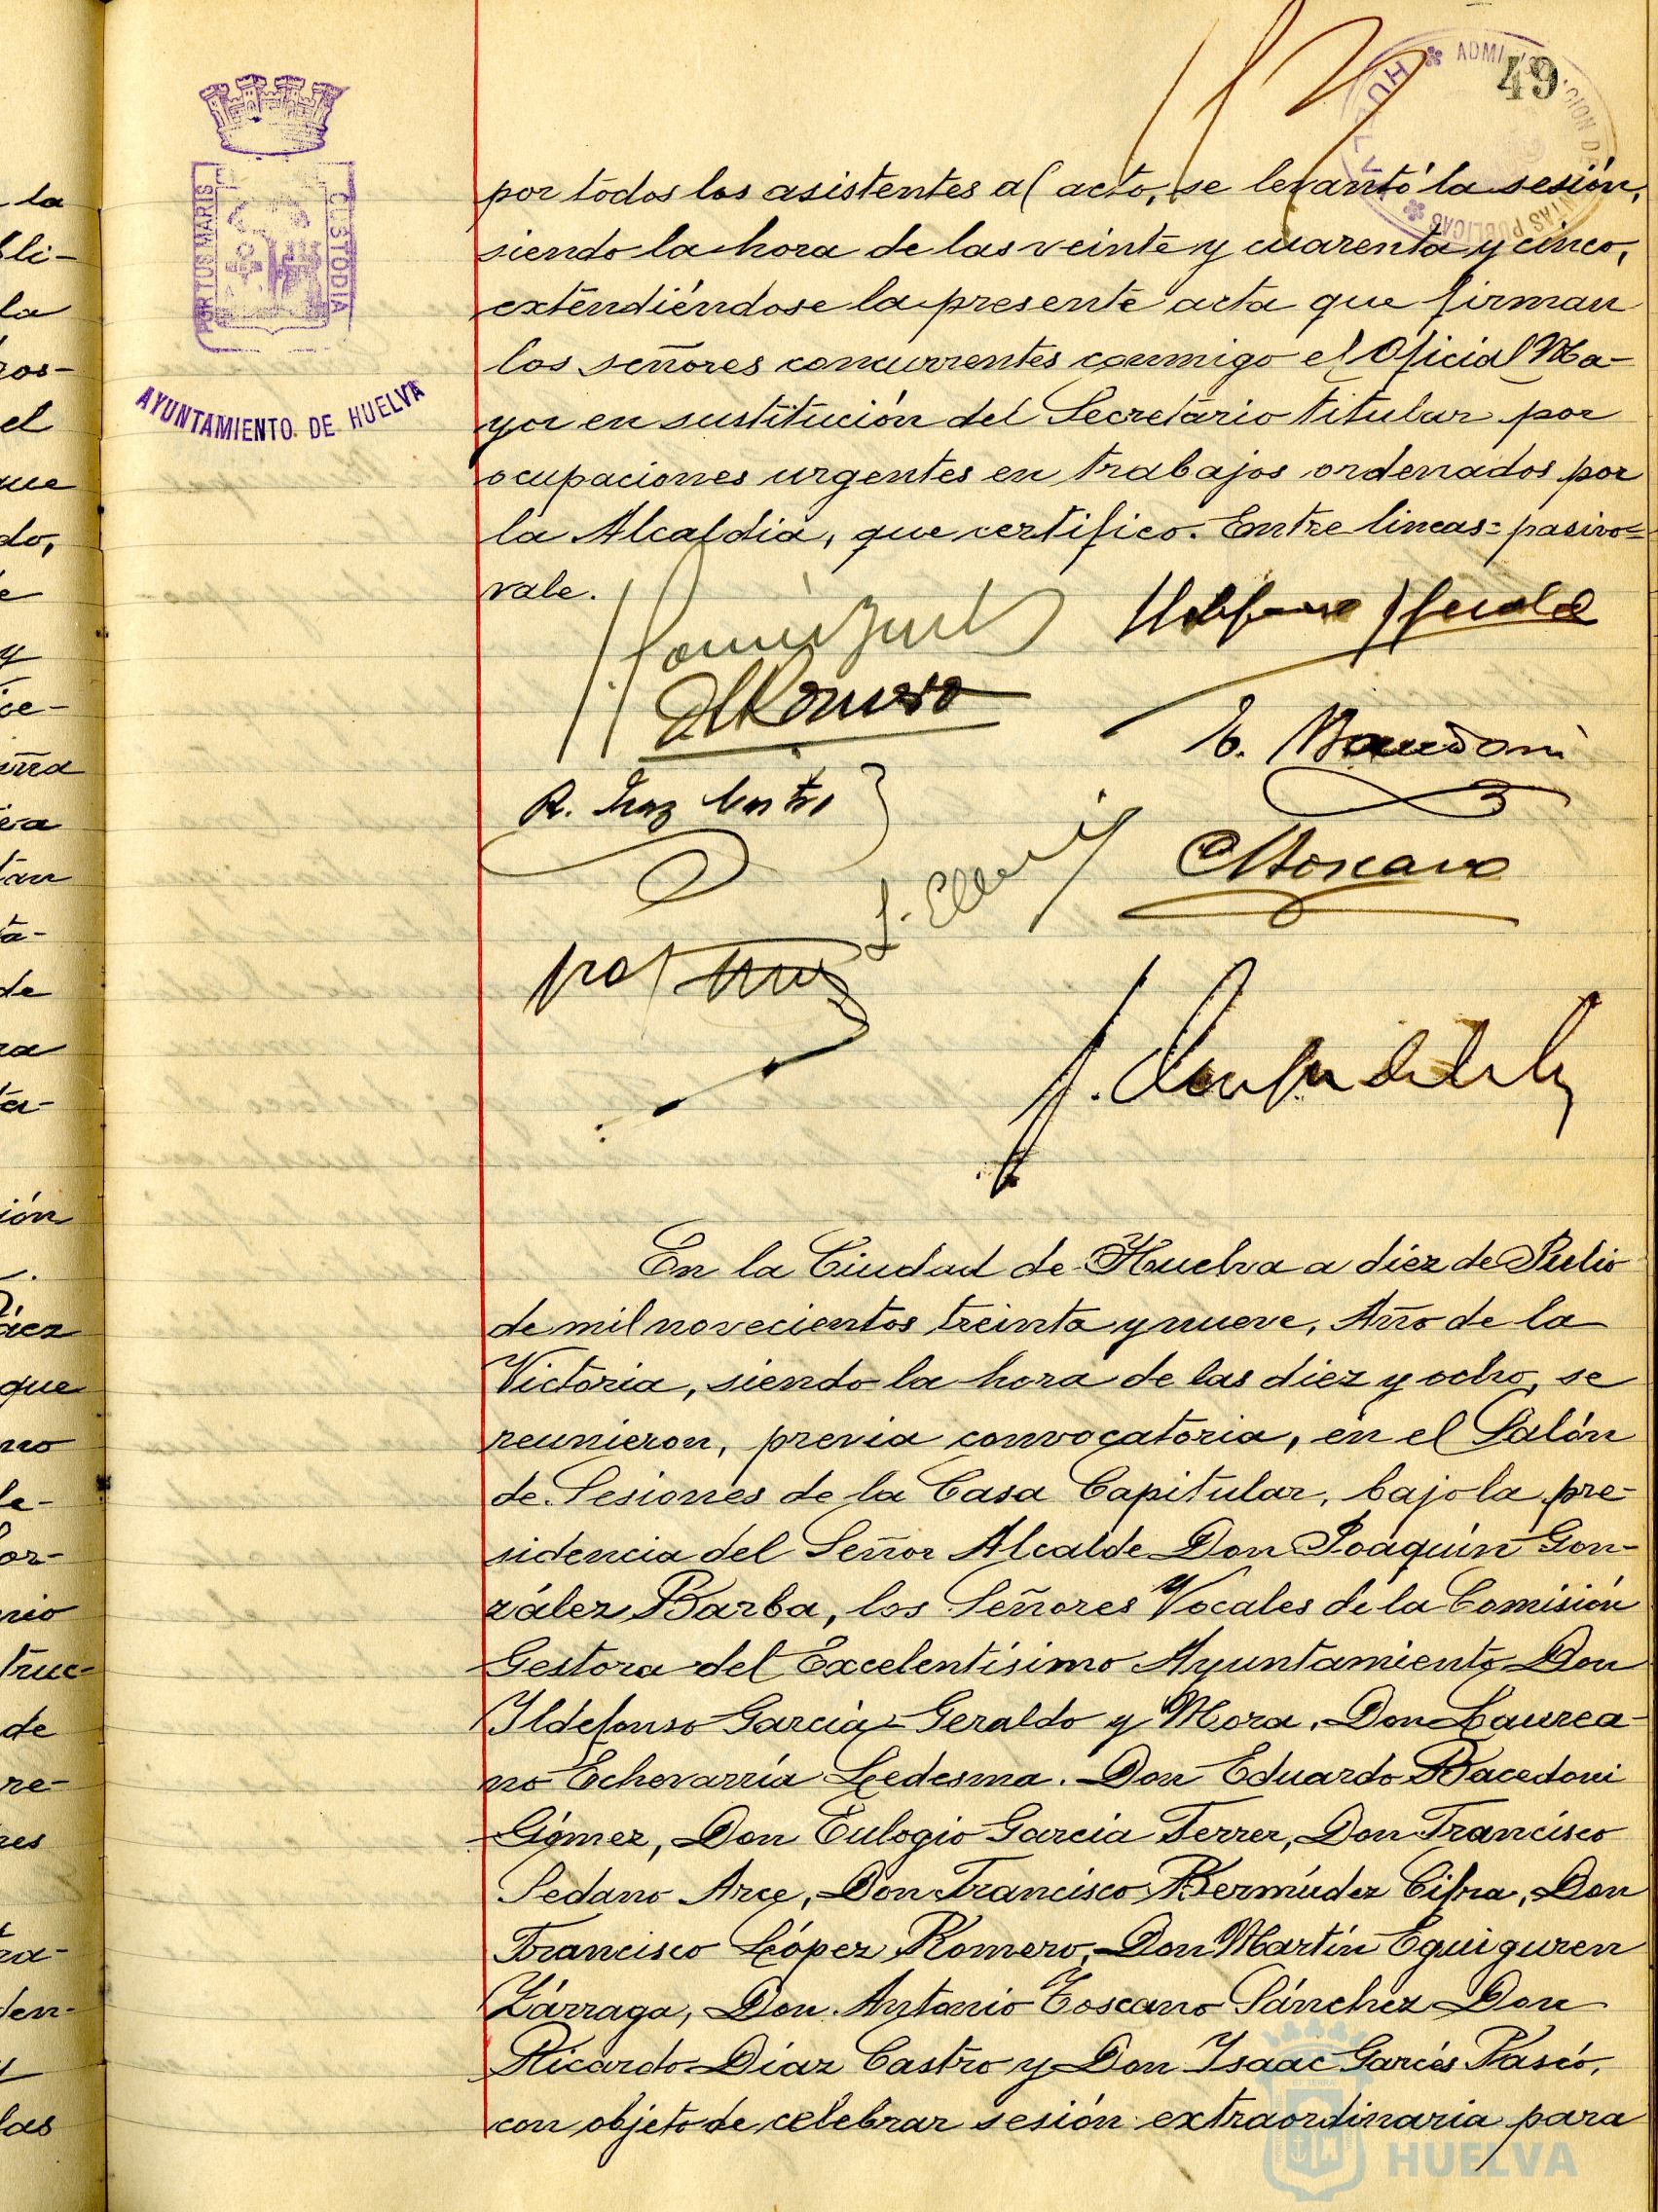 49
ADMINISTRACION DE RENTAS PUBLICAS
HUELVA
PORTUS MARIS
CUSTODIA
AYUNTAMIENTO DE HUELVA
por todos los asistentes al acto, se levantó la sesión,
siendo la hora de las veinte y cuarenta y cinco,
extendiéndose la presente acta que firman
los señores concurrentes conmigo el Oficial Ma-
yor en sustitución del Secretario titular por
ocupaciones urgentes en trabajos ordenados por
la Alcaldia, que certifico. Entre lineas=pasivo=
vale.
Romero
E. Bacedoni
R. Diaz Castro
Toscano
En la Ciudad de Huelva a diez de Julio
de mil novecientos treinta y nueve, Año de la
Victoria, siendo la hora de las diez y ocho, se
reunieron, previa convocatoria, en el Salón
de Sesiones de la Casa Capitular, bajo la pre-
sidencia del Señor Alcalde Don Joaquín Gon-
zález Barba, los Señores Vocales de la Comisión
Gestora del Excelentísimo Ayuntamiento Don
Ildefonso García-Geraldo y Mora, Don Laurea-
no Echevarría Ledesma. Don Eduardo Bacedoni
Gómez, Don Eulogio García Ferrer, Don Francisco
Sedano Arce, Don Francisco Bermúdez Cifra, Don
Francisco López Romero, Don Martín Eguiguren
Zárraga, Don Antonio Toscano Sánchez Don
Ricardo Díaz Castro y Don Isaac Garcés Pascó,
con objeto de celebrar sesión extraordinaria para
HUELVA